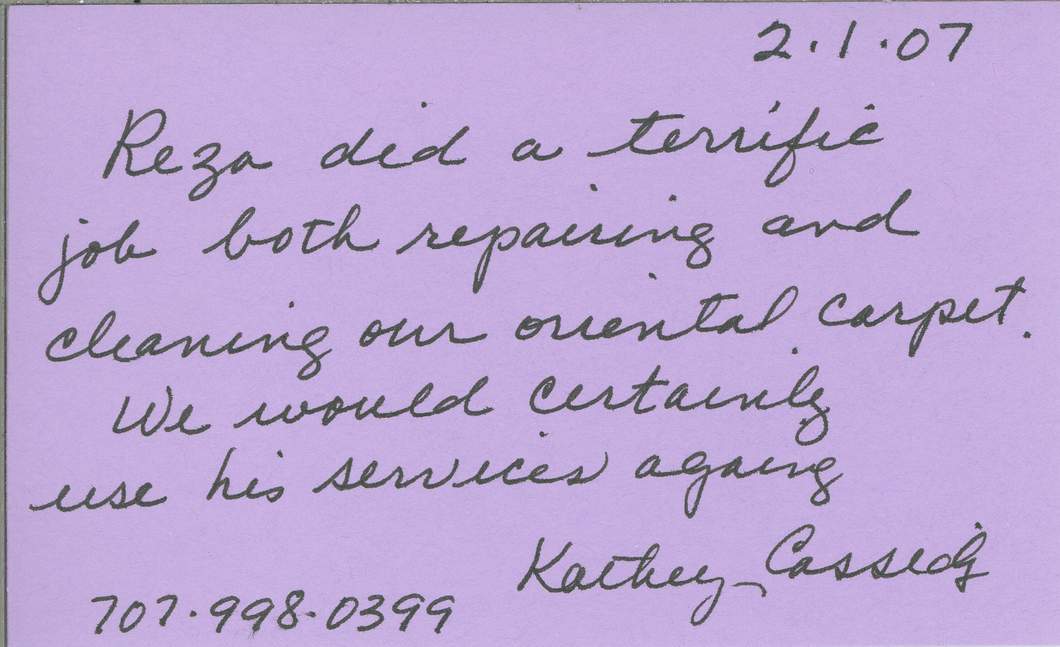 2.1.07
Reza did a terrific
job both repairing and
cleaning our oriental carpet.
We would certainly
use his services again
Kathey Cassidy
707.998.0399